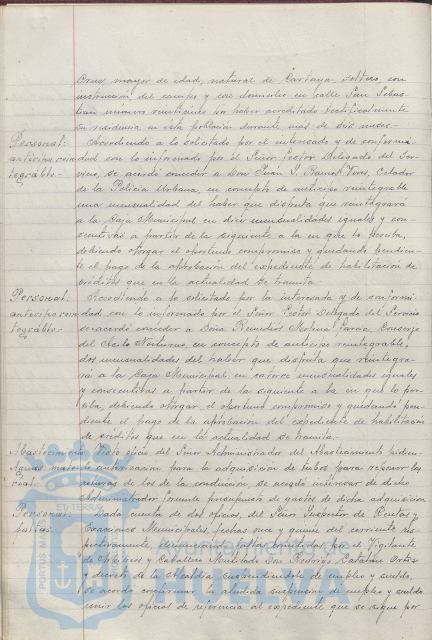 Cruz, mayor de edad, natural de Cartaya, soltero, con
instrucción, del campo y con domicilio en calle San Sebas-
tian número veintiuno por haber acreditado
su residencia en esta población durante más de dos meses.-
Personal: Accediendo a lo solicitado por el interesado y de conformi-
anticipo rein dad con lo informado por el Señor Gestor Delegado del Ser-
tegrable.- vicio, se acordó conceder a Don Juan J. Ramos Vives, Celador
de la Policía Urbana, en concepto de anticipo reintegrable
una mensualidad del haber que disfruta que reintegrará
a la Caja Municipal en diez mensualidades iguales y con-
secutivas a partir de la siguiente a la en que lo perciba,
debiendo otorgar el oportuno compromiso y quedando pendien-
te el pago de la aprobación del expediente de habilitación de
créditos que en la actualidad se tramita.-
Personal: Accediendo a lo solicitado por la interesada y de conformi-
anticipo rein dad con lo informado por el Señor Gestor Delegado del Servicio
tegrable.- se acordó conceder a Doña Remedios Molina García, Conserje
del Asilo Nocturno, en concepto de anticipo reintegrable,
dos mensualidades del haber que disfruta que reintegra-
rá a la Caja Municipal en catorce mensualidades iguales
y consecutivas a partir de la siguiente a la en que lo per-
ciba, debiendo otorgar el oportuno compromiso y quedando pen-
diente el pago de la aprobación del expediente de habilitación
de créditos que en la actualidad se tramita.-
Abastecimiento Visto oficio del Señor Administrador del Abastecimiento pidien-
Aguas: mate- do autorización para la adquisición de tubos para reponer las
rial.- roturas de los de la conducción, se acordó interesar de dicho
Administrador formule presupuesto de gastos de dicha adquisición
Personal: Dada cuenta de dos oficios del Señor Inspector de Rentas y
Exacciones Municipales, fechas once y quince del corriente res-
pectivamente, denunciando faltas cometidas por el Vigilante
de Arbitrios y Caballero Mutilado Don Rodrigo Catalán Ortiz
y decreto de la Alcaldía suspendiéndole de empleo y sueldo,
se acordó confirmar la aludida suspensión de empleo y sueldo
unir los oficios de referencia al expediente que se sigue por
PORTUS MARIS
ET TERRAE
Ayuntamiento de
HUELVA